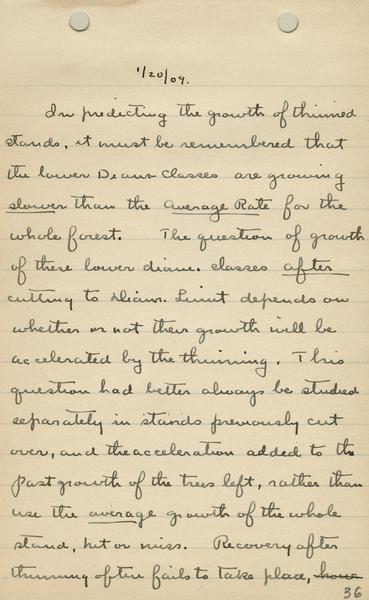 1/20/09.
In predicting the growth of thinned
stands, it must be remembered that
the lower Diam Classes are growing
slower than the Average Rate for the
whole forest. The question of growth
of these lower diam. classes after
cutting to Diam. Limit depends on
whether or not their growth will be
accelerated by the thinning. This
question had better always be studied
separately in stands previously cut
over, and the acceleration added to the
past growth of the trees left, rather than
use the average growth of the whole
stand, hit or miss. Recovery after
thinning often fails to take place, how
36